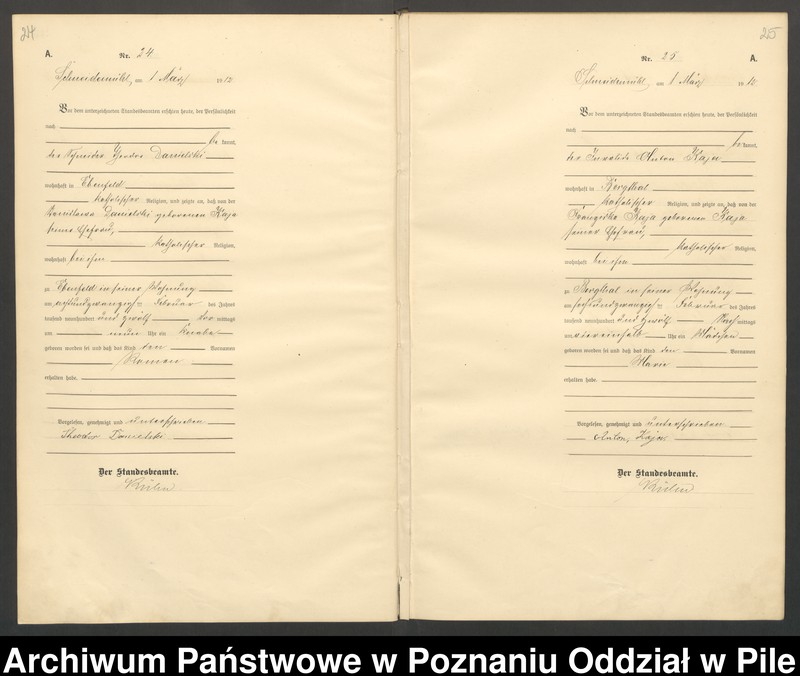 24
A.
Nr. 24
Schneidemühl, am 1 März 1912
Vor dem unterzeichneten Standesbeamten erschien heute, der Persönlichkeit
nach
be kannt,
der Schneider Theodor Danielski
wohnhaft in Ebenfeld
katholischer Religion, und zeigte an, daß von der
Danielski geborenen Kaja
seiner Ehefrau,
katholischer Religion,
wohnhaft bei ihm
zu Ebenfeld in seiner Wohnung
am achtundzwanzigsten Februar des Jahres
tausend neunhundert und zwölf Vor mittags
um neun Uhr ein Knabe
geboren worden sei und daß das Kind den Vornamen
Roman
erhalten habe.
Vorgelesen, genehmigt und unterschrieben
Theodor Danielski
Der Standesbeamte.
25
Nr. 25
A.
Schneidemühl, am 1 März 1912
Vor dem unterzeichneten Standesbeamten erschien heute, der Persönlichkeit
nach
be kannt,
der Invalide Anton Kaja
wohnhaft in Bergthal
katholischer Religion, und zeigte an, daß von der
Franziska Kaja geborenen Kaja
seiner Ehefrau,
katholischer Religion,
wohnhaft bei ihm
zu Bergthal in seiner Wohnung
am sechsundzwanzigsten Februar des Jahres
tausend neunhundert und zwölf Nach mittags
um viereinhalb Uhr ein Mädchen
geboren worden sei und daß das Kind den Vornamen
Marie
erhalten habe.
Vorgelesen, genehmigt und unterschrieben
Anton Kaja
Der Standesbeamte.
Archiwum Państwowe w Poznaniu Oddział w Pile